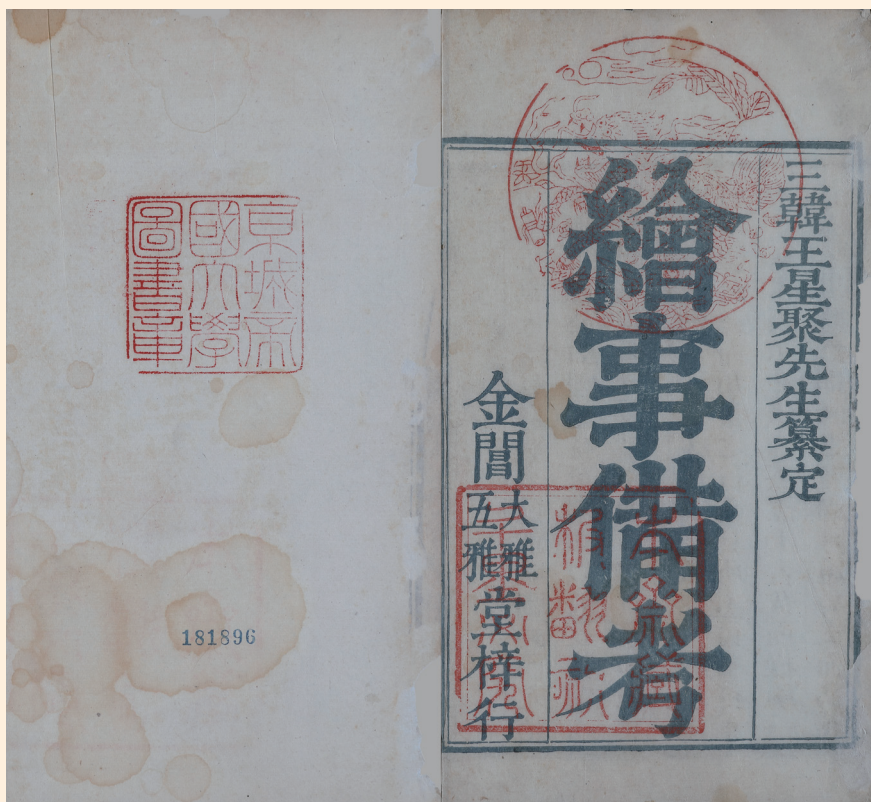 三韓王星聚先生纂定
繪事備考
金閶大雅五雅堂梓行
京城帝
國大學
圖書章
181896